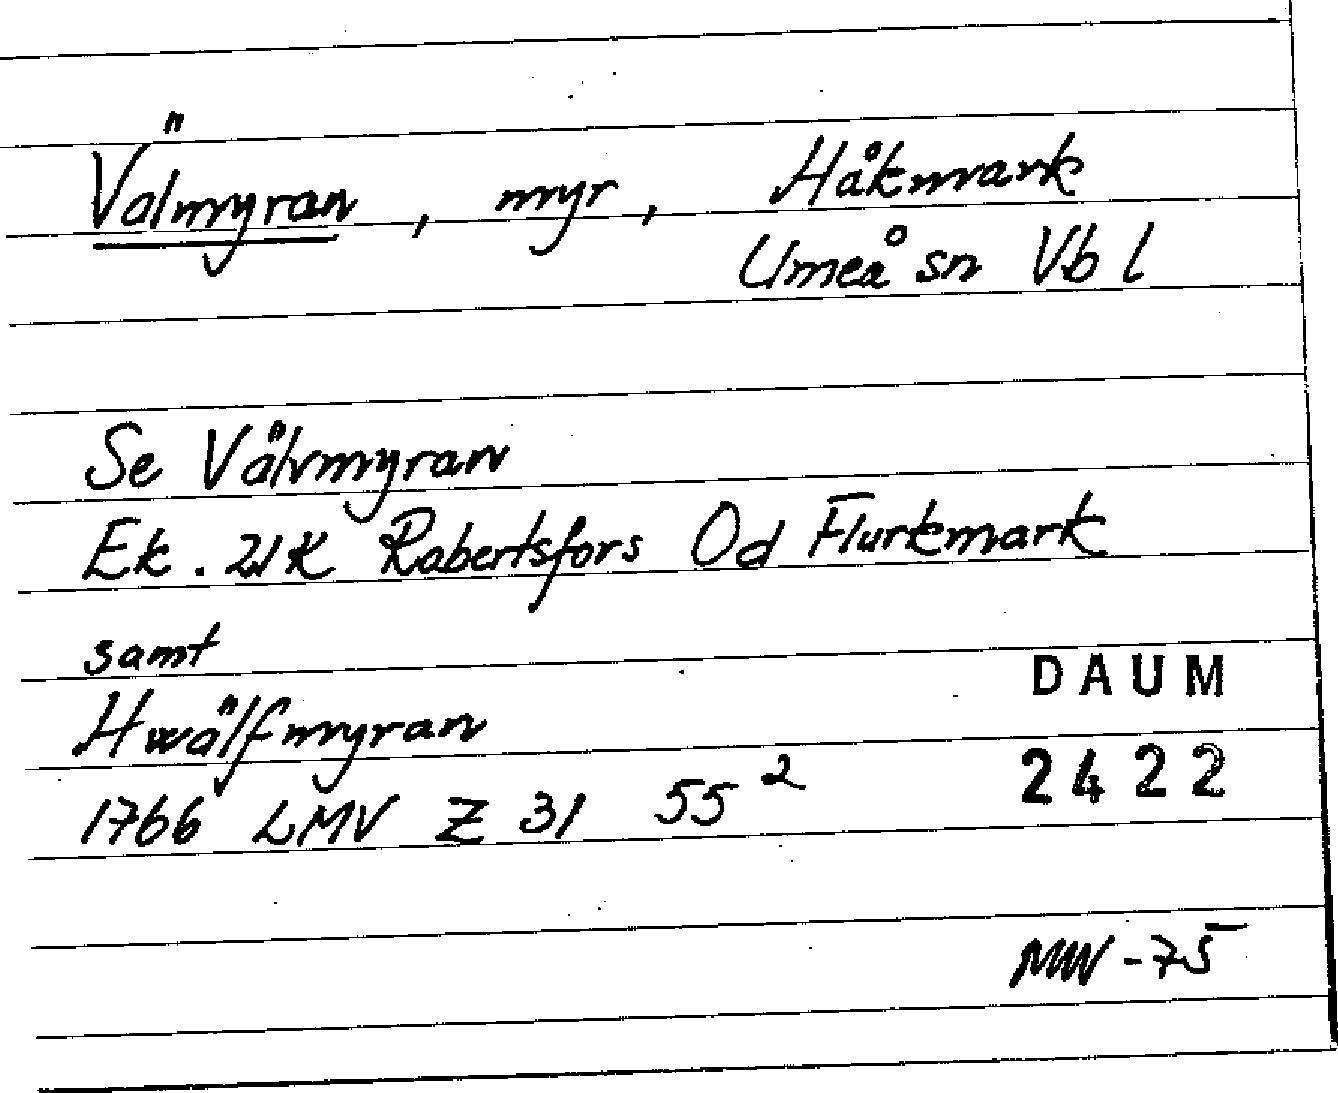 Välmyran, myr, Håkmark
Umeå sn Vb l
Se Välvmyran
Ek. 21K Robertsfors Od Flurkmark
samt
Hwälfmyran
1766 LMV Z 31 55²
DAUM
2422
MW-75